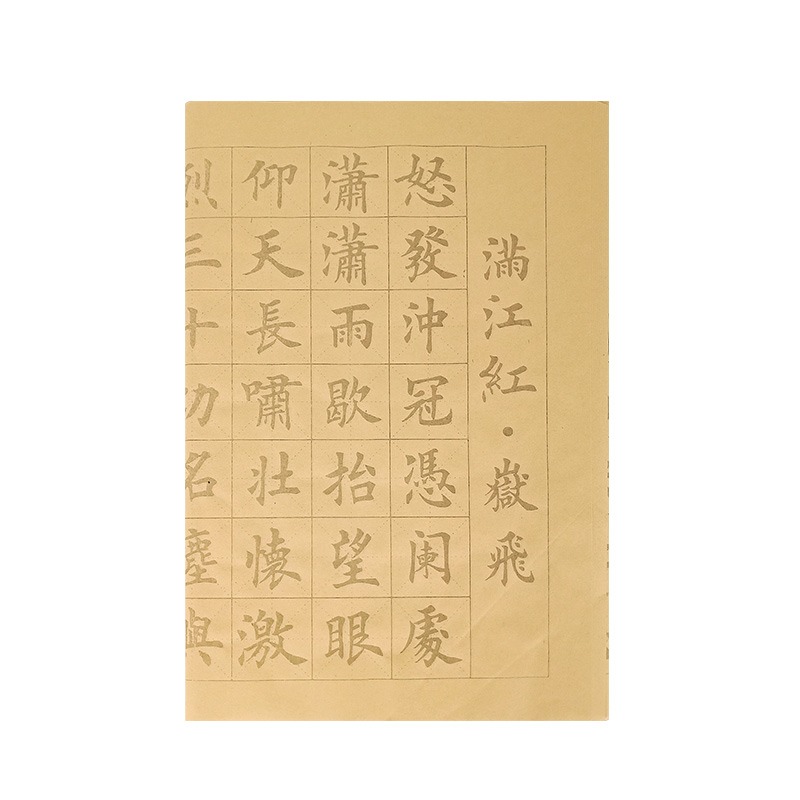 滿江紅·嶽飛
怒發沖冠憑阑處
瀟瀟雨歇抬望眼
仰天長嘯壯懷激
烈三十功名塵與